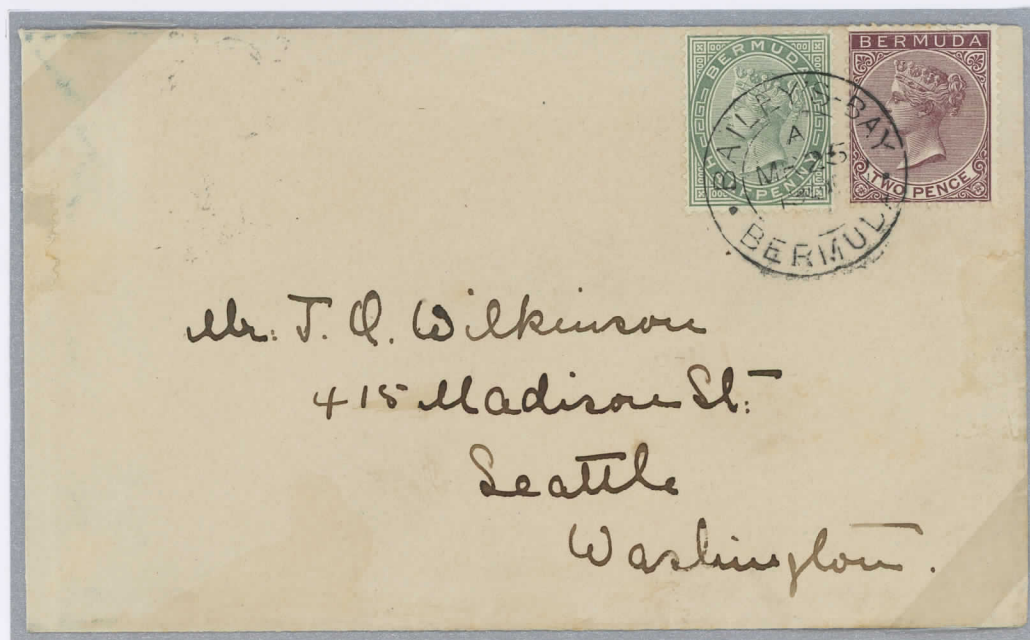 BERMUDA
HALFPENNY
BERMUDA
TWO PENCE
BAILEY'S-BAY
A
25
BERMUDA
Mr. J. Q. Wilkinson
415 Madison St.
Seattle
Washington.